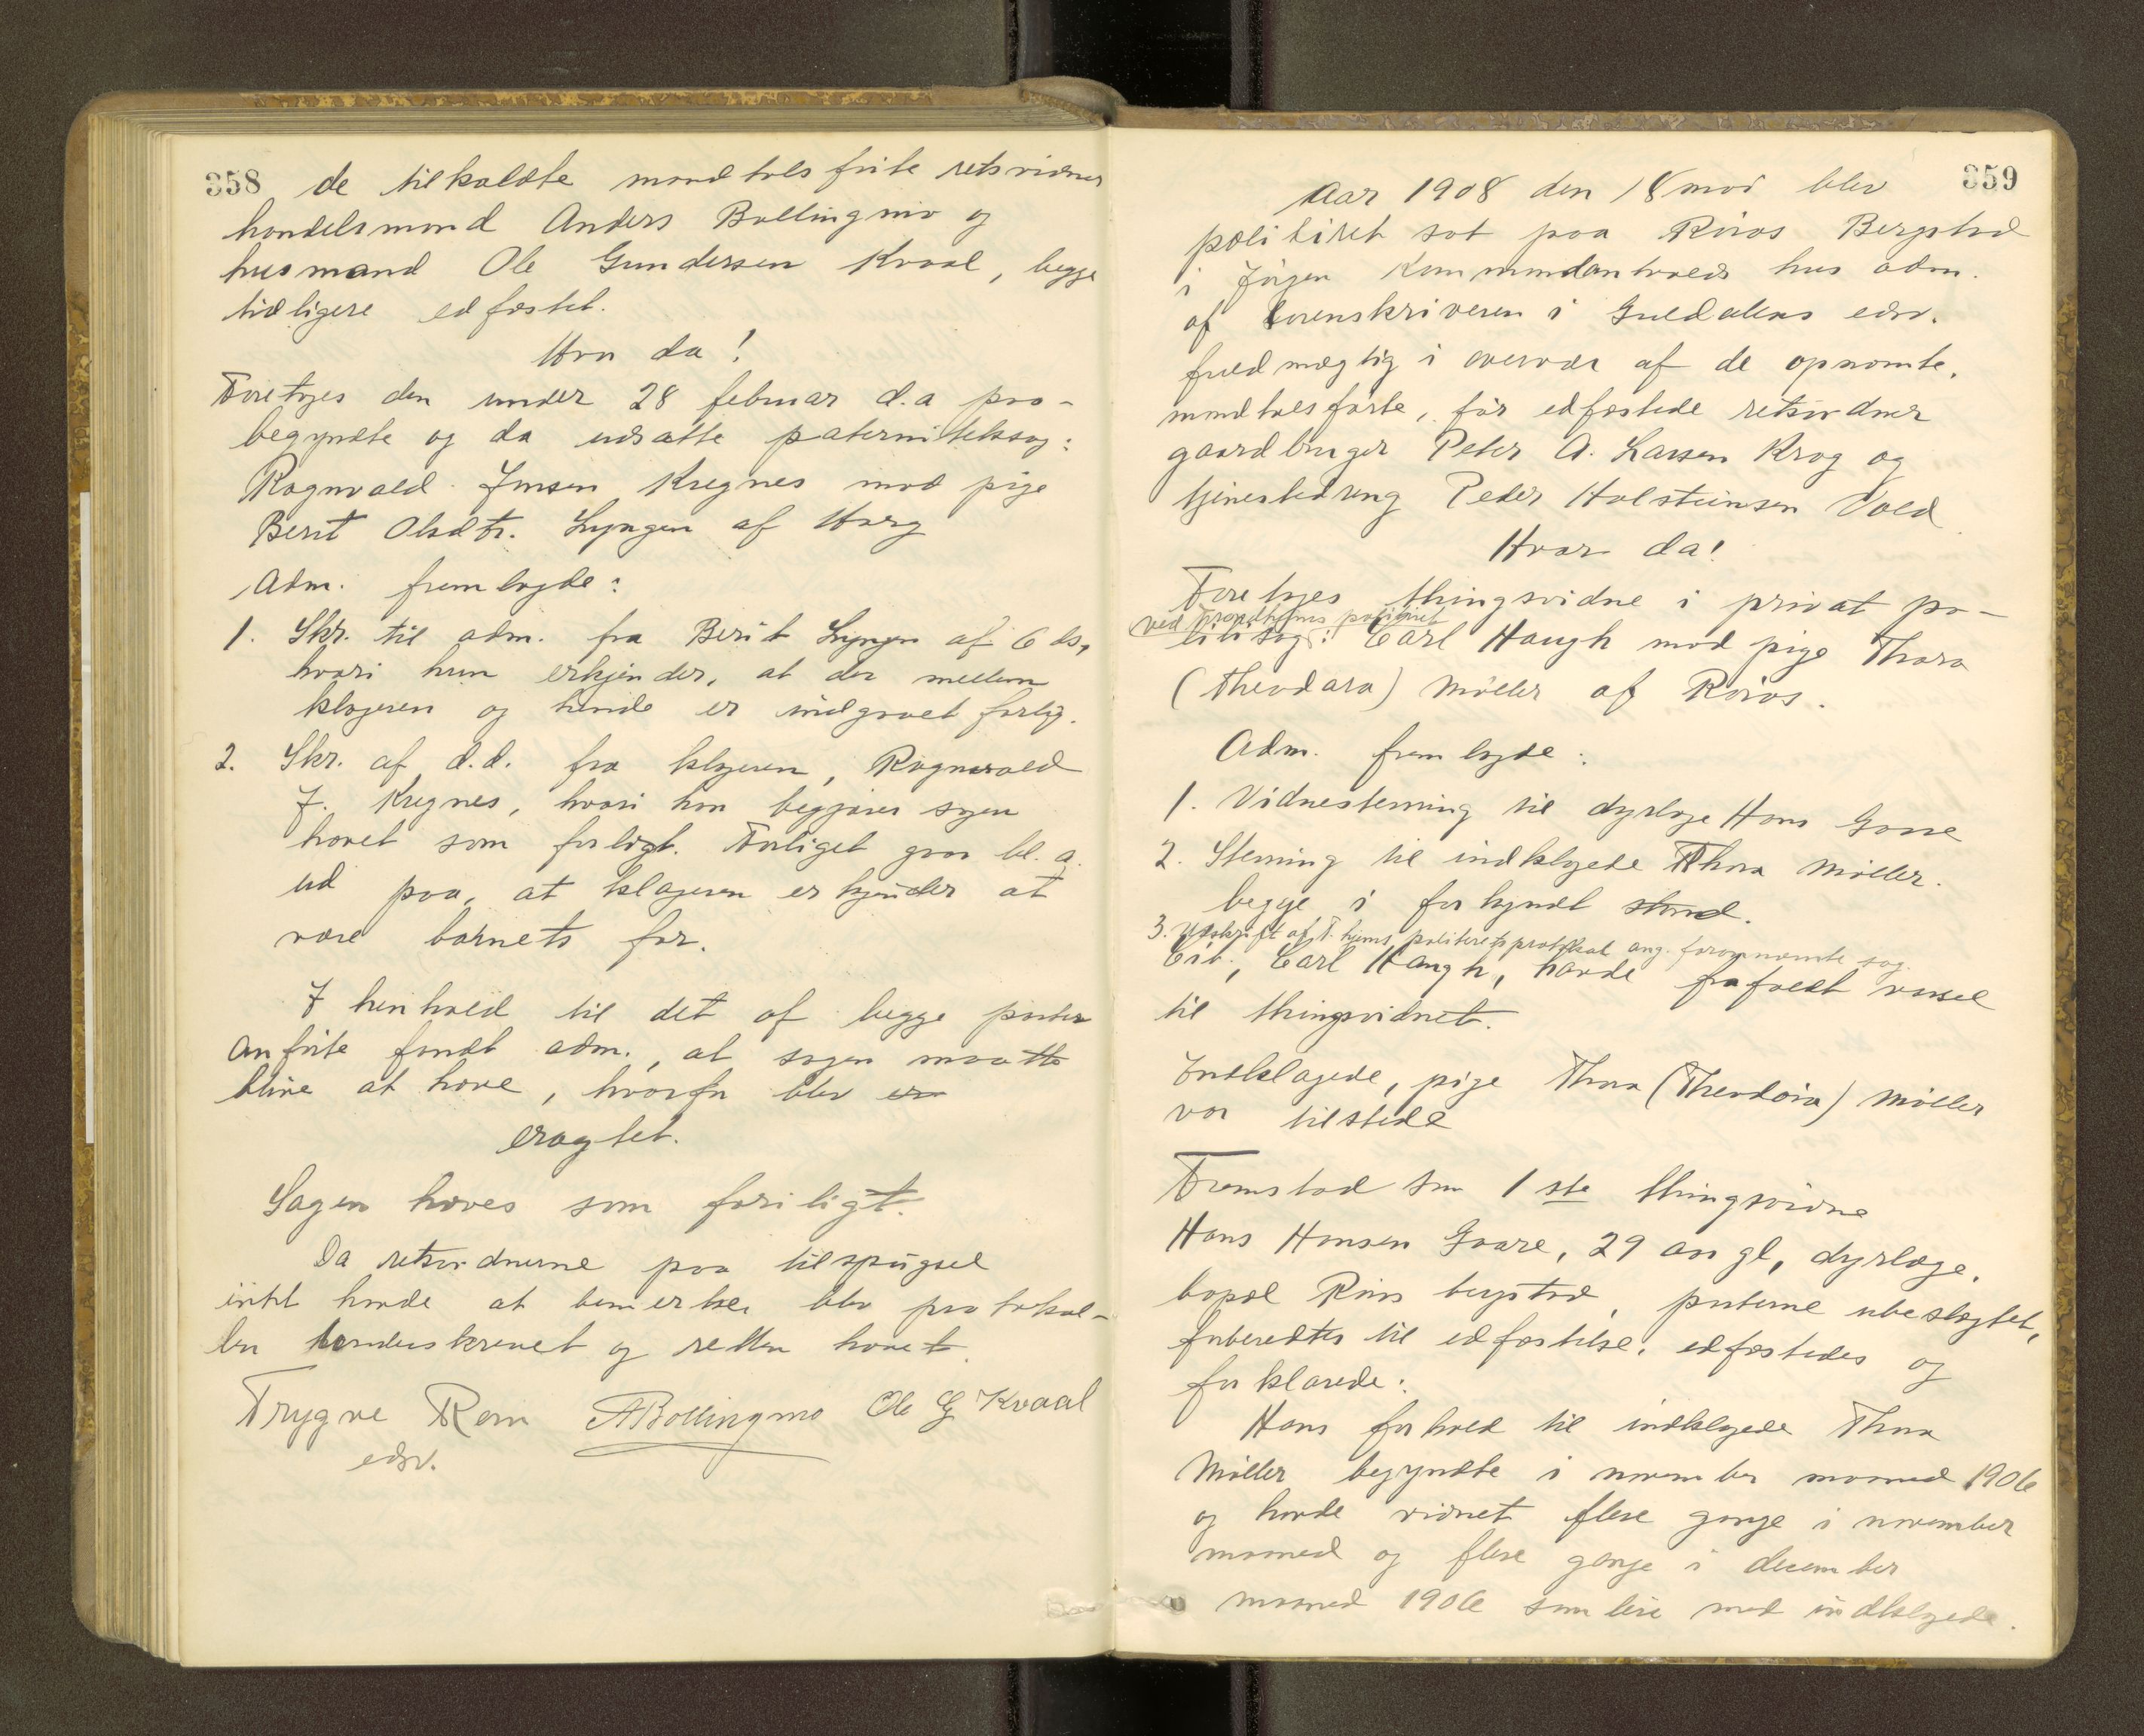 358 de tilkaldte mandtalsførte retsvidner
handelsmand Anders Bollingmo og
husmand Ole Gundersen Kvaal, begge
tidligere edfæstet.
Hvor da!
Foretoges den under 28 februar d.a paa-
begyndte og da udsatte paternitetssag:
Ragnvald Jensen Kregnes mod pige
Berit Olsdtr. Lyngen af Horg
Adm. fremlagde:
1. Skr. til adm. fra Berit Lyngen af 6 ds,
hvori hun erkjender, at der mellem
klageren og hende er indgaaet forlig.
2. Skr. af d.d. fra klageren, Ragnvald
J. Kregnes, hvori han begjærer sagen
hævet som forligt. Forliget gaar bl. a.
ud paa, at klageren erkjender at
være barnets far.
I henhold til det af begge parter
anførte fandt adm., at sagen maatte
blive at hæve, hvorfor blev er
eragtet.
Sagen hæves som forligt.
Da retsvidnerne paa tilspørgsel
intet havde at bemerke, blev protokol-
len underskrevet og retten hævet.
Trygve Rom ABollingmo Ole G Kvaal
edsv.
359
Aar 1908 den 18 mai blev
politiret sat paa Røros Bergstad
i Jörgen Kummundantvolds hus adm.
af sorenskriveren i Guldalens edsv.
fuldmægtig i overvær af de opnævnte,
mandtalsførte, før edfæstede retsvidner
gaardbruger Peter A. Larsen Krog og
tjenestedreng Peder Holsteinsen Vold
Hvor da!
Foretoges thingsvidne i privat po-
ved Trondhjems politiret
litisag: Carl Haugh mod pige Thora
(Theodora) Møller af Røros.
Adm. fremlagde:
1. Vidnestevning til dyrlæge Hans Gaare
2. Stevning til indklagede Thora Møller.
begge i forkyndt stand.
3. Udskrift af T.hjems politiretsprotokol ang. forannævnte sag.
Cit., Carl Haugh, havde frafaldt varsel
til thingsvidnet.
Indklagede, pige Thora (Theodora) Møller
var tilstede
Fremstod som 1ste thingsvidne
Hans Hansen Gaare, 29 aar gl, dyrlæge,
bopæl Røros bergstad, parterne ubeslægtet,
forberedtes til edfæstelse, edfæstedes og
forklarede:
Hans forhold til indklagede Thora
Møller begyndte i november maaned 1906
og havde vidnet flere gange i november
maaned og flere gange i december
maaned 1906 samleie med indklagede.